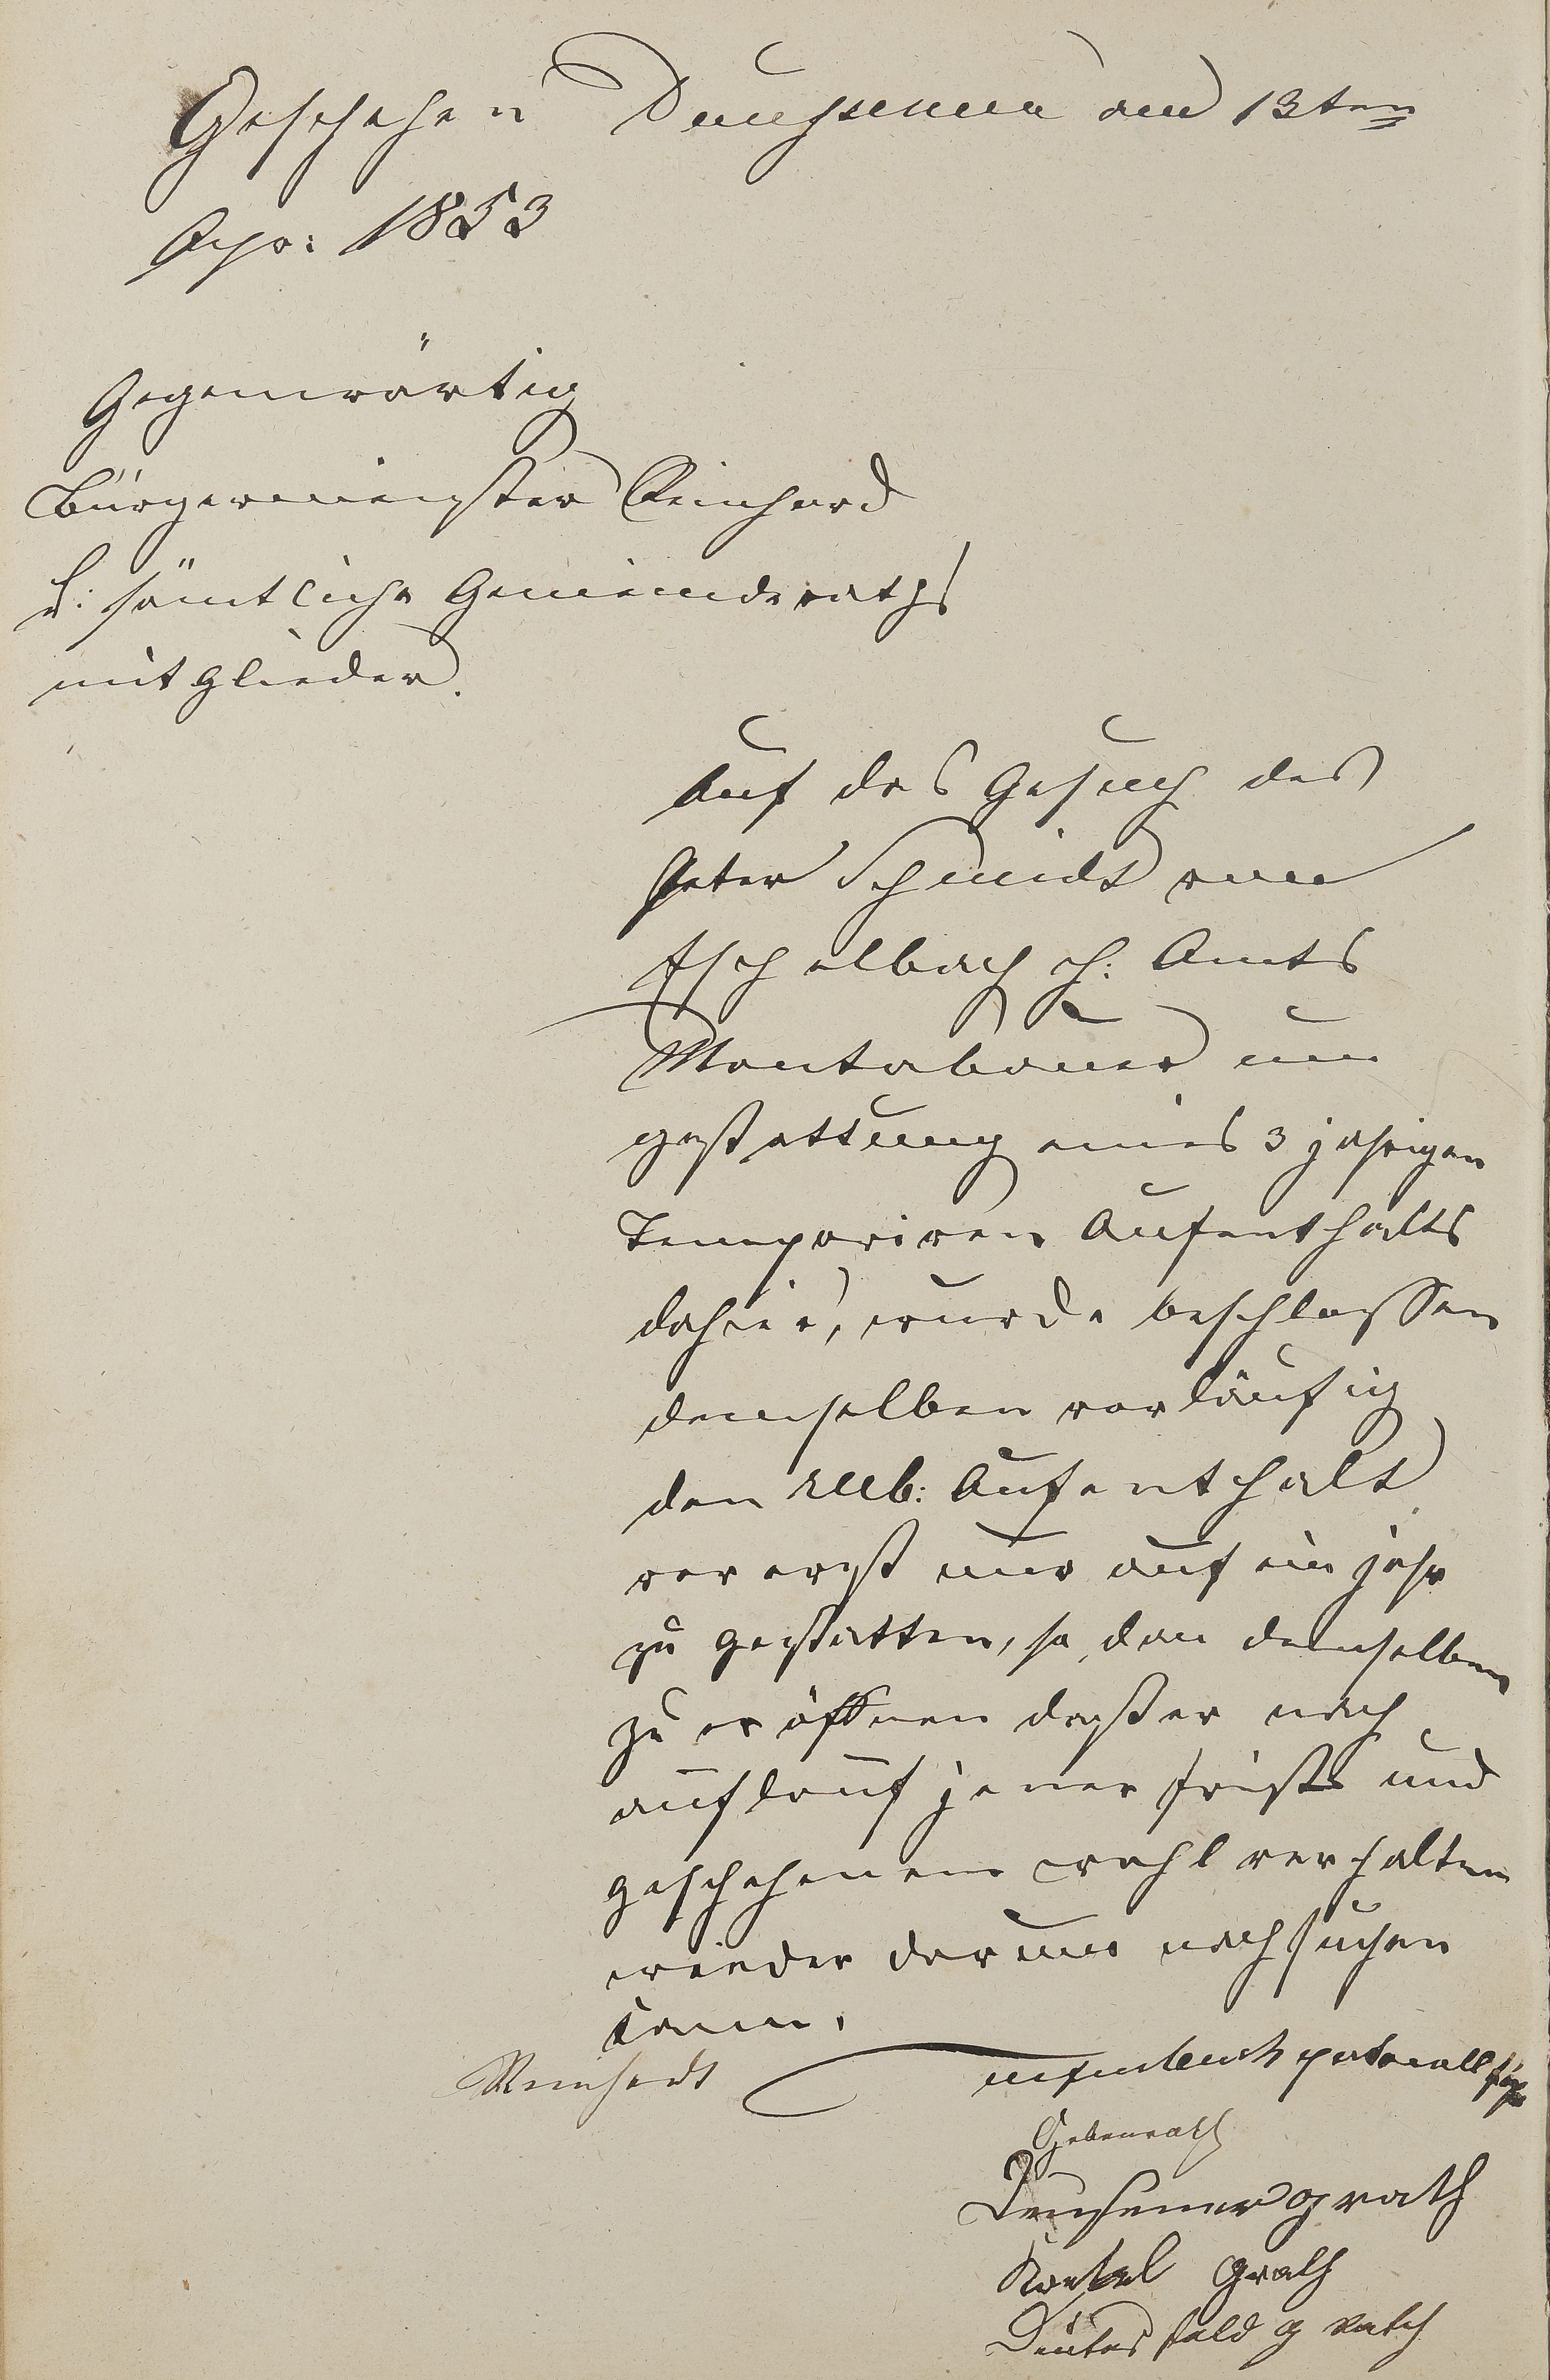 Geschehen Dausenau am 13ten
Apr: 1853
Gegenwärtig
Bürgermeigster Reinhard
d: sämtliche Gemeinderaths
mitglieder.
Auf das Gesuch des
Peter Schmidt von
Eschelbach h: Amts
Montabauer um
gestattung eines 3 jahrigen
Temporiren Aufenthalts
dahier, wurde beschlossen
demselben vorläufig
den Aufenthalt
vor erst nur auf ein jahr
zu gestatten, so dan demselben
zu eröffnen daß er nach
auflauf jener frist und
geschehenem wohl verhalten
wieder darum nachsuchen
kann.
Reinhardt
Gebenrath
grath
grath
g rath